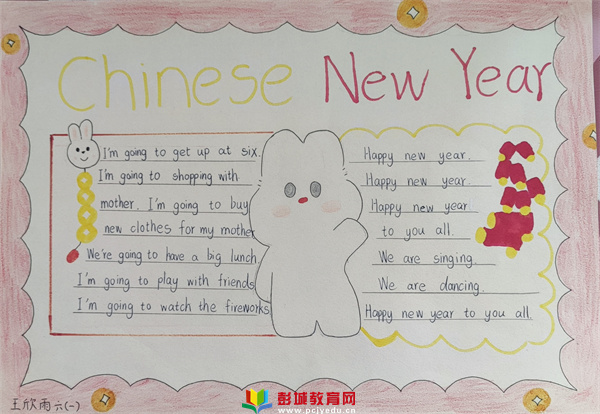 Chinese New Year
I'm going to get up at six.
I'm going to shopping with
mother. I'm going to buy
new clothes for my mother
We're going to have a big lunch
I'm going to play with friends
I'm going to watch the fireworks
Happy new year.
Happy new year.
Happy new year
to you all.
We are singing.
We are dancing.
Happy new year to you all.
王欣雨六(一)
彭城教育网
www.pcjyedu.cn